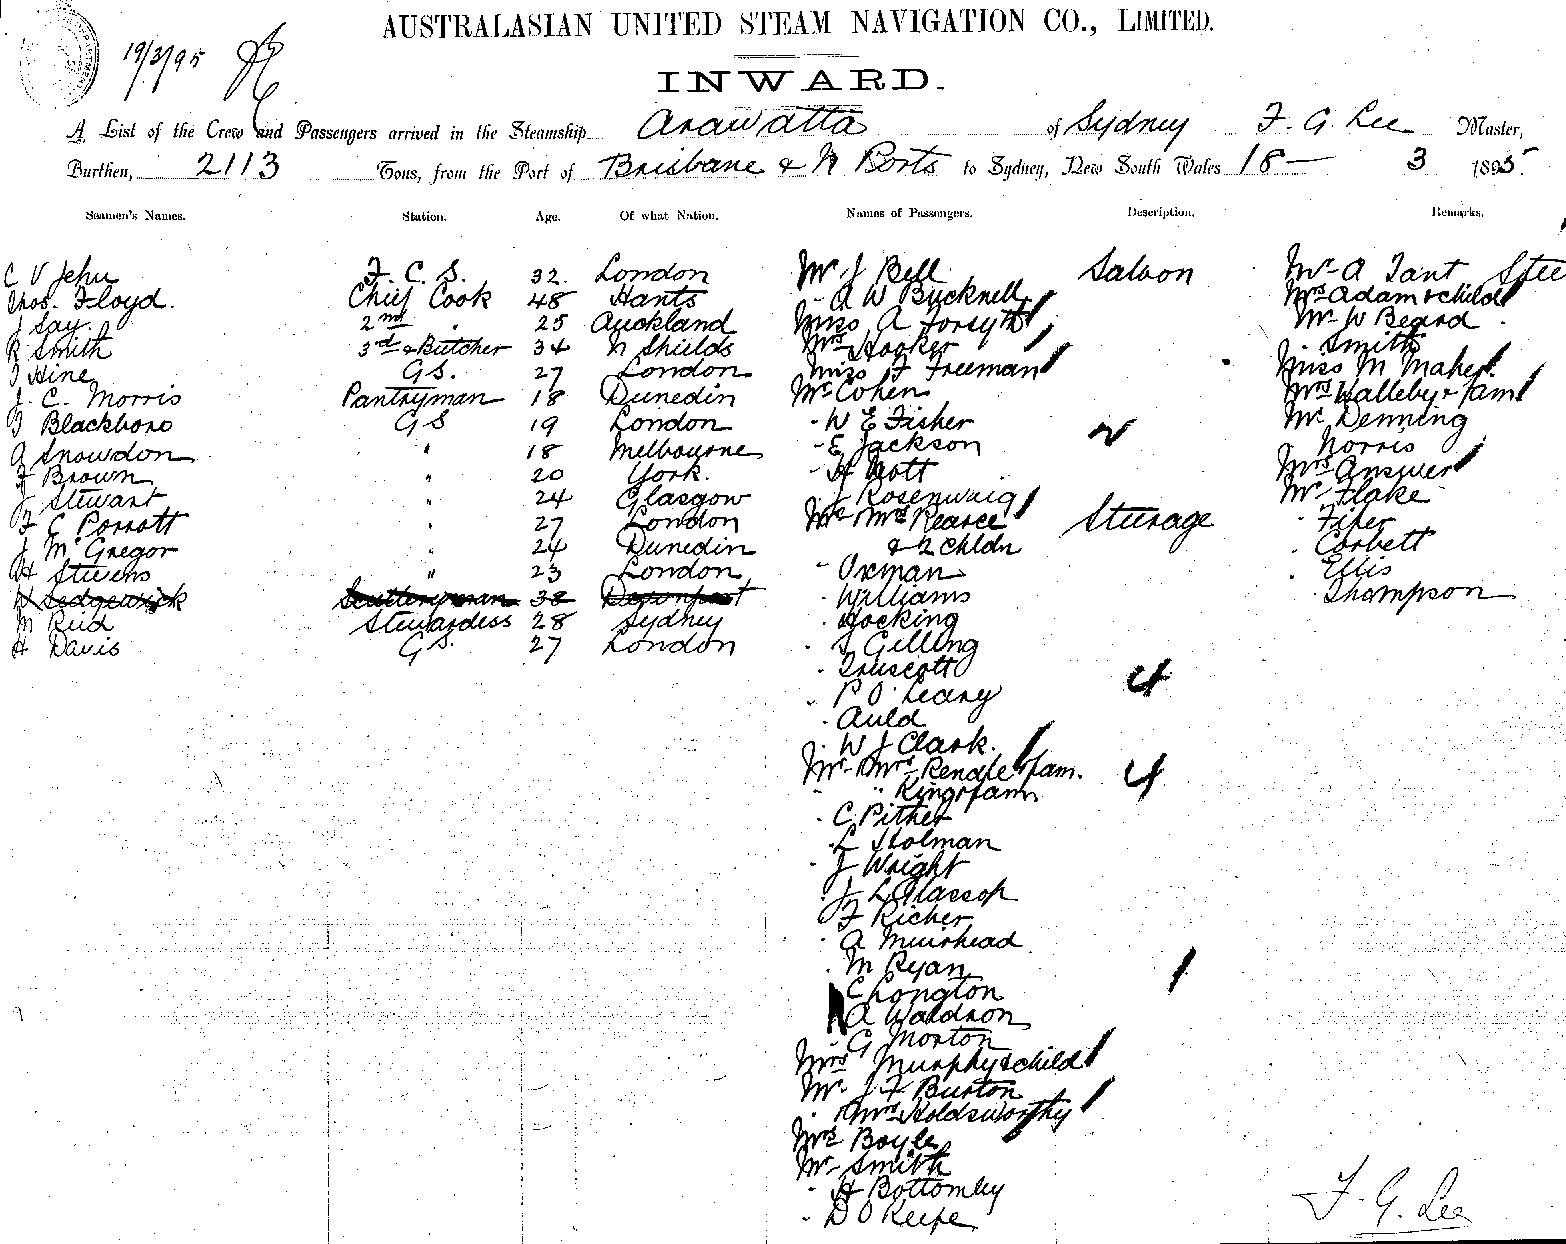 AUSTRALASIAN UNITED STEAM NAVIGATION CO., LIMITED.
19/3/95
INWARD.
A List of the Crew and Passengers arrived in the Steamship Arawatta of Sydney F. G. Lee Master,
Burthen, 2113 Tons, from the Port of Brisbane & N Ports to Sydney, New South Wales 18 — 3 1895.
Seamen's Names. Station. Age. Of what Nation. Names of Passengers. Description. Remarks.
C V Jehu F. C. S. 32. London Mr J Bell Saloon Mr A Tant Stee
Thos. Floyd. Chief Cook 48 Hants " A W Bucknell Mrs Adam & child
J Say. 2nd " 25 Auckland Miss A Forsyth Mr W Beard
R Smith 3rd & Butcher 34 N Shields Mrs Hooker " Smith
J Hine G S. 27 London Miss F Freeman Miss M Maher
J. C. Morris Pantryman 18 Dunedin Mr Cohen Mrs Halleby & fam
J Blackboro G S 19 London " W E Fisher Mr Denning
A Snowdon " 18 Melbourne " E Jackson 2 " Norris
F Brown " 20 York. " H Nott Mrs Answer
J Stewart " 24 Glasgow " J Rosenwaig Mr Flake
F C Porrott " 27 London Mr Mrs Pearce Steerage " Fifer
J McGregor " 24 Dunedin & 2 Chldn " Corbett
H Stevens " 23 London " Oxman " Ellis
W Sedgewick Sculleryman 38 Devonport " Williams " Thompson
M Reid Stewardess 28 Sydney " Hocking
H Davis G S. 27 London " S Gelling
" Truscott
" P O'Leary 4
" Auld
" W J Clark.
Mr Mrs Rendle & fam. 4
" " King & fam
" C Pither
" L Holman
" J Wright
" J L Glassop
" F Richer
" A Muirhead
" M Ryan
" C Longton
" A Waldron
" G Morton
Mrs Murphy & child
Mr J F Burton
" Mrs Holdsworthy
Mrs Boyle
Mr Smith
" H Bottomley
" D O Keefe
F. G. Lee